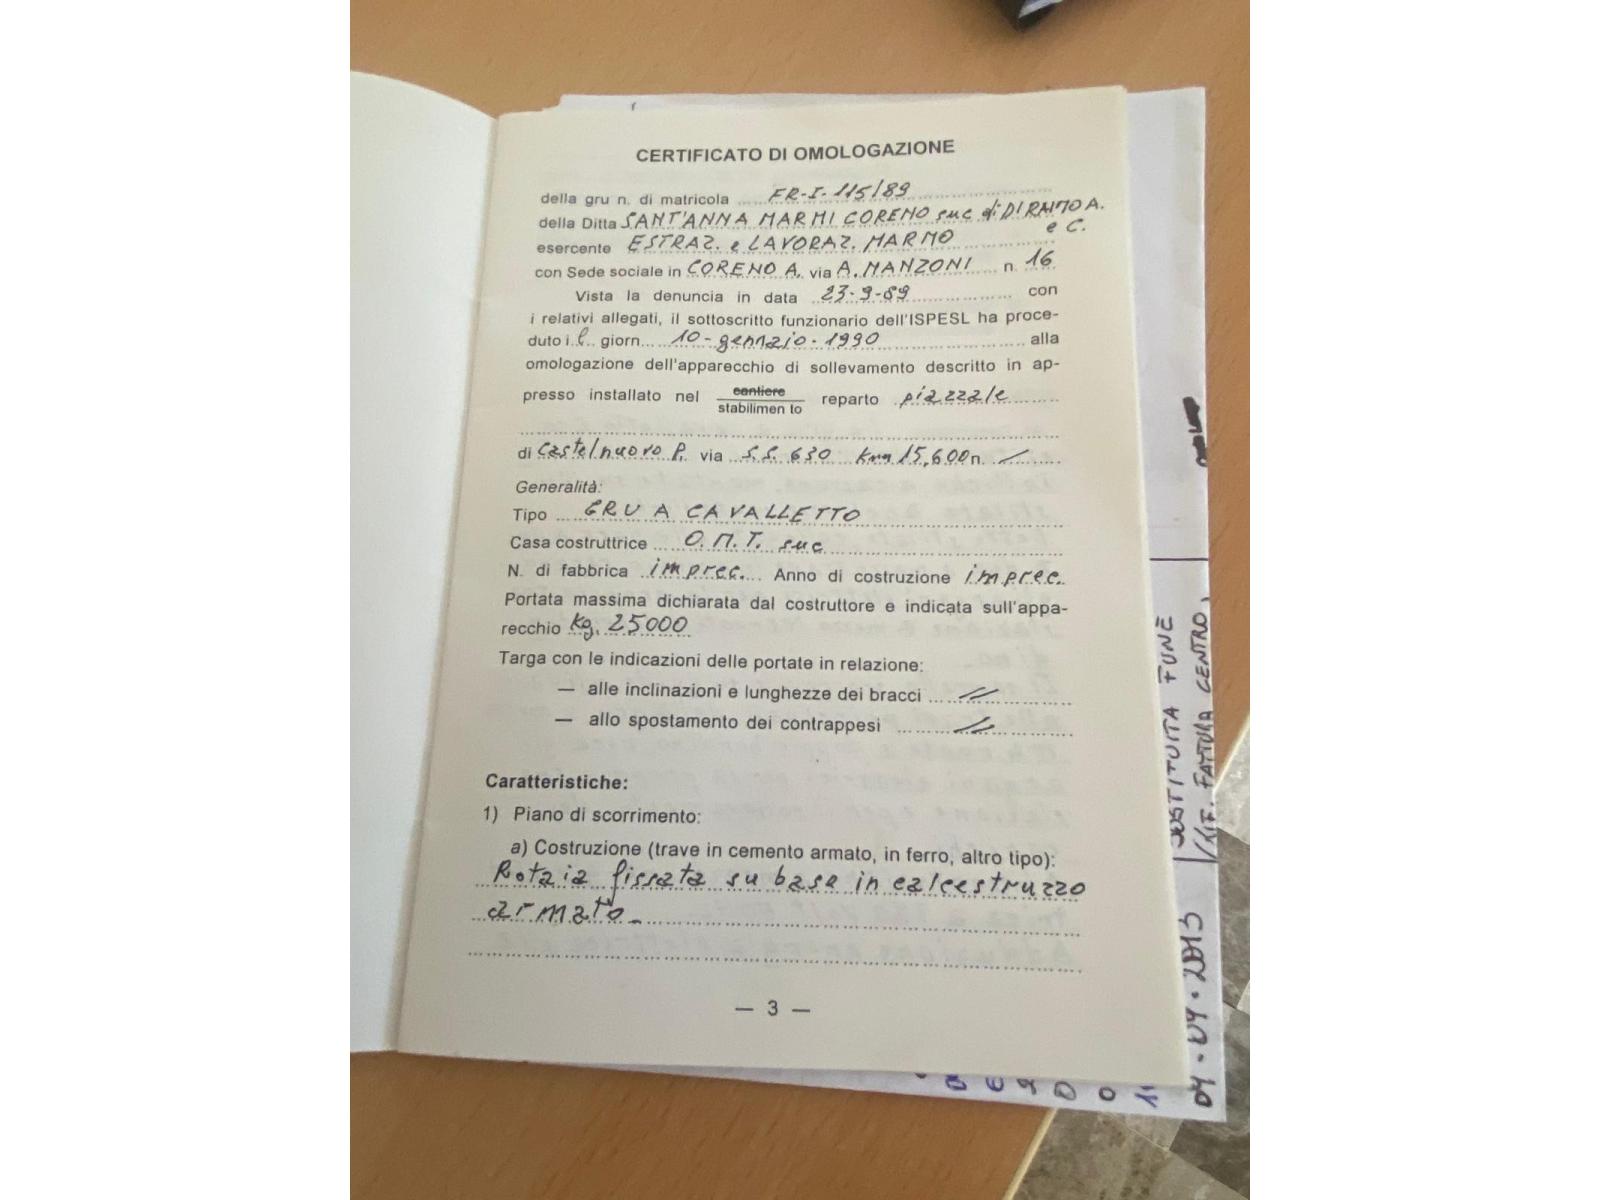 CERTIFICATO DI OMOLOGAZIONE
della gru n. di matricola FR-I-115/89
della Ditta SANT'ANNA MARMI CORENO suc di DIRAIMO A.
e C.
esercente ESTRAZ. e LAVORAZ. MARMO
con Sede sociale in CORENO A. via A. MANZONI n. 16
Vista la denuncia in data 23-9-89 con
i relativi allegati, il sottoscritto funzionario dell'ISPESL ha proce-
duto i l giorn 10-gennaio-1990 alla
omologazione dell'apparecchio di sollevamento descritto in ap-
presso installato nel cantiere stabilimento reparto piazzale
di Castelnuovo P. via S.S. 630 Km 15,600 n. /
Generalità:
Tipo GRU A CAVALLETTO
Casa costruttrice O.M.T. suc
N. di fabbrica imprec. Anno di costruzione imprec.
Portata massima dichiarata dal costruttore e indicata sull'appa-
recchio Kg. 25000
Targa con le indicazioni delle portate in relazione:
— alle inclinazioni e lunghezze dei bracci //
— allo spostamento dei contrappesi //
Caratteristiche:
1) Piano di scorrimento:
a) Costruzione (trave in cemento armato, in ferro, altro tipo):
Rotaia fissata su base in calcestruzzo
armato.
— 3 —
04.04.2013
SOSTITUITA FUNE
RIF. FATTURA CENTRO,